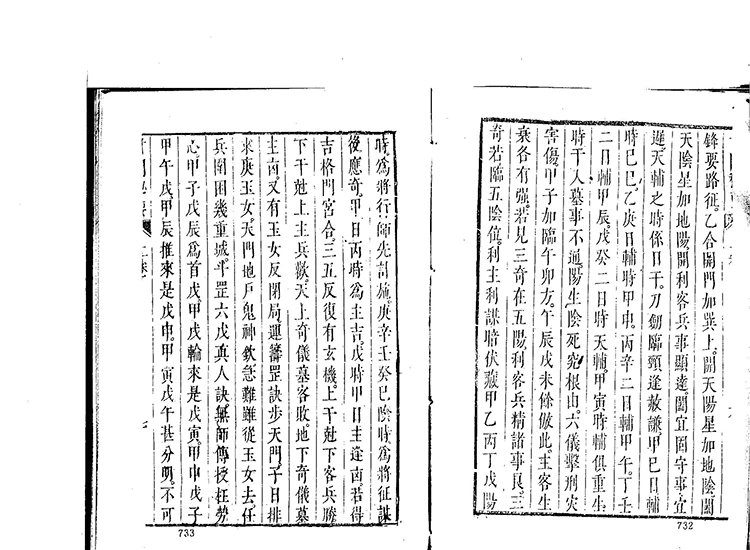 鋒要路征。乙合開門加巽上。開天陽星加地陰闔
天陰星加地陽開利客兵事顯達。闔宜固守事宜
遲。天輔之時係日干。刀劒臨頭逢赦讞。甲巳日輔
時巳巳。乙庚日輔時甲申。丙辛二日輔甲午。丁壬
二日輔甲辰。戊癸二日時天輔。甲寅時輔俱重生
時干入墓事不通。陽生陰死究根由。六儀擊刑灾
害傷甲子加臨午卯方。午辰戌未餘倣此。主客生
乘各有强。若見三奇在五陽利客兵精諸事良。三
奇若臨五陰位。利主利謀暗伏藏甲乙丙丁戊陽
時爲將行師先討施。庚辛壬癸巳陰時爲將征謀
後應奇。甲日丙時爲主吉。戊時甲日主逢凶若得
吉格門宮合。三五反復有玄機。上干尅下客兵勝
下干尅上主兵歡。天上奇儀墓客敗。地下奇儀墓
主凶。又有玉女反閉局。運籌罡訣步天門。子日排
來庚玉女。天門地戸鬼神欽。急難雖從玉女去。任
兵圍困幾重城。斗罡六戊真人訣。無師傳授枉勞
心。甲子戊辰爲首戌。甲戌輪來是戊寅。甲申戊子
甲午戌。甲辰推來是戊申。甲寅戊午甚分明。不可
二卷
七
732
733